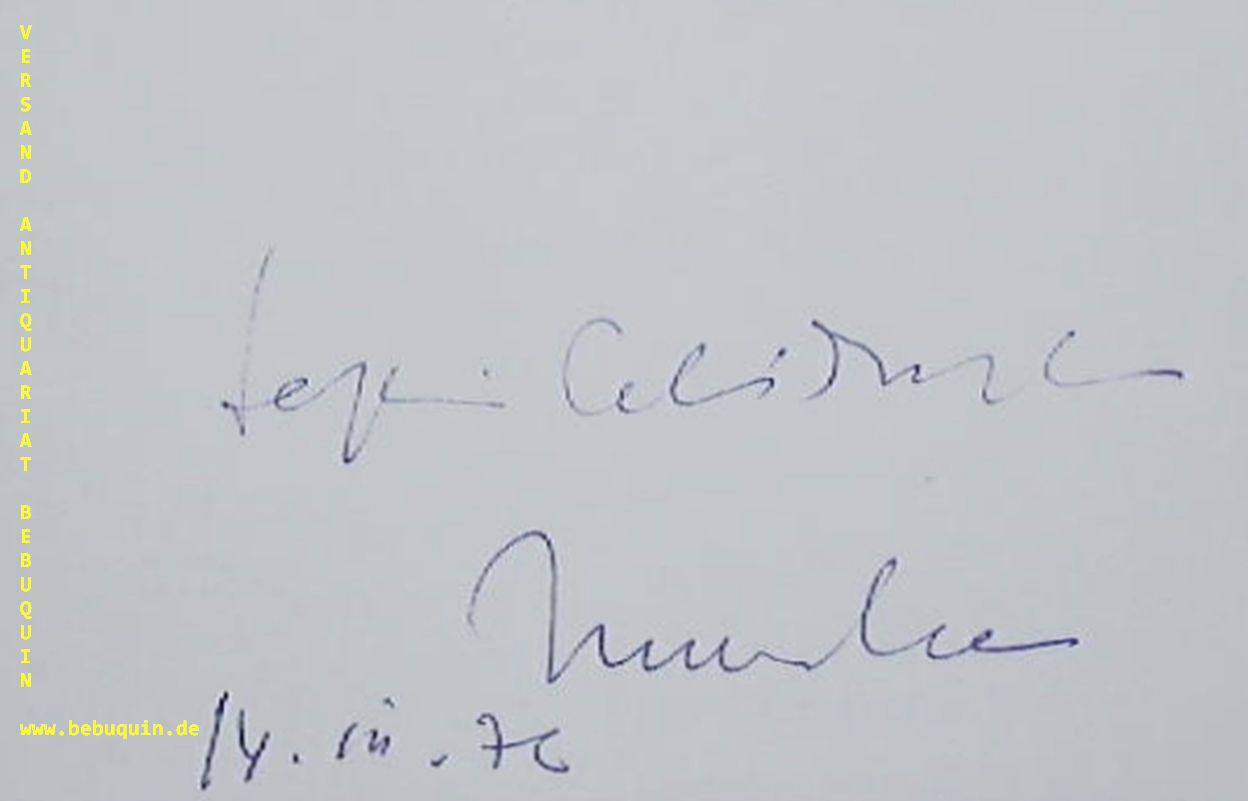 VERSAND ANTIQUARIAT BEBUQUIN
www.bebuquin.de
Sergiu Celibidache
München
14. III. 76